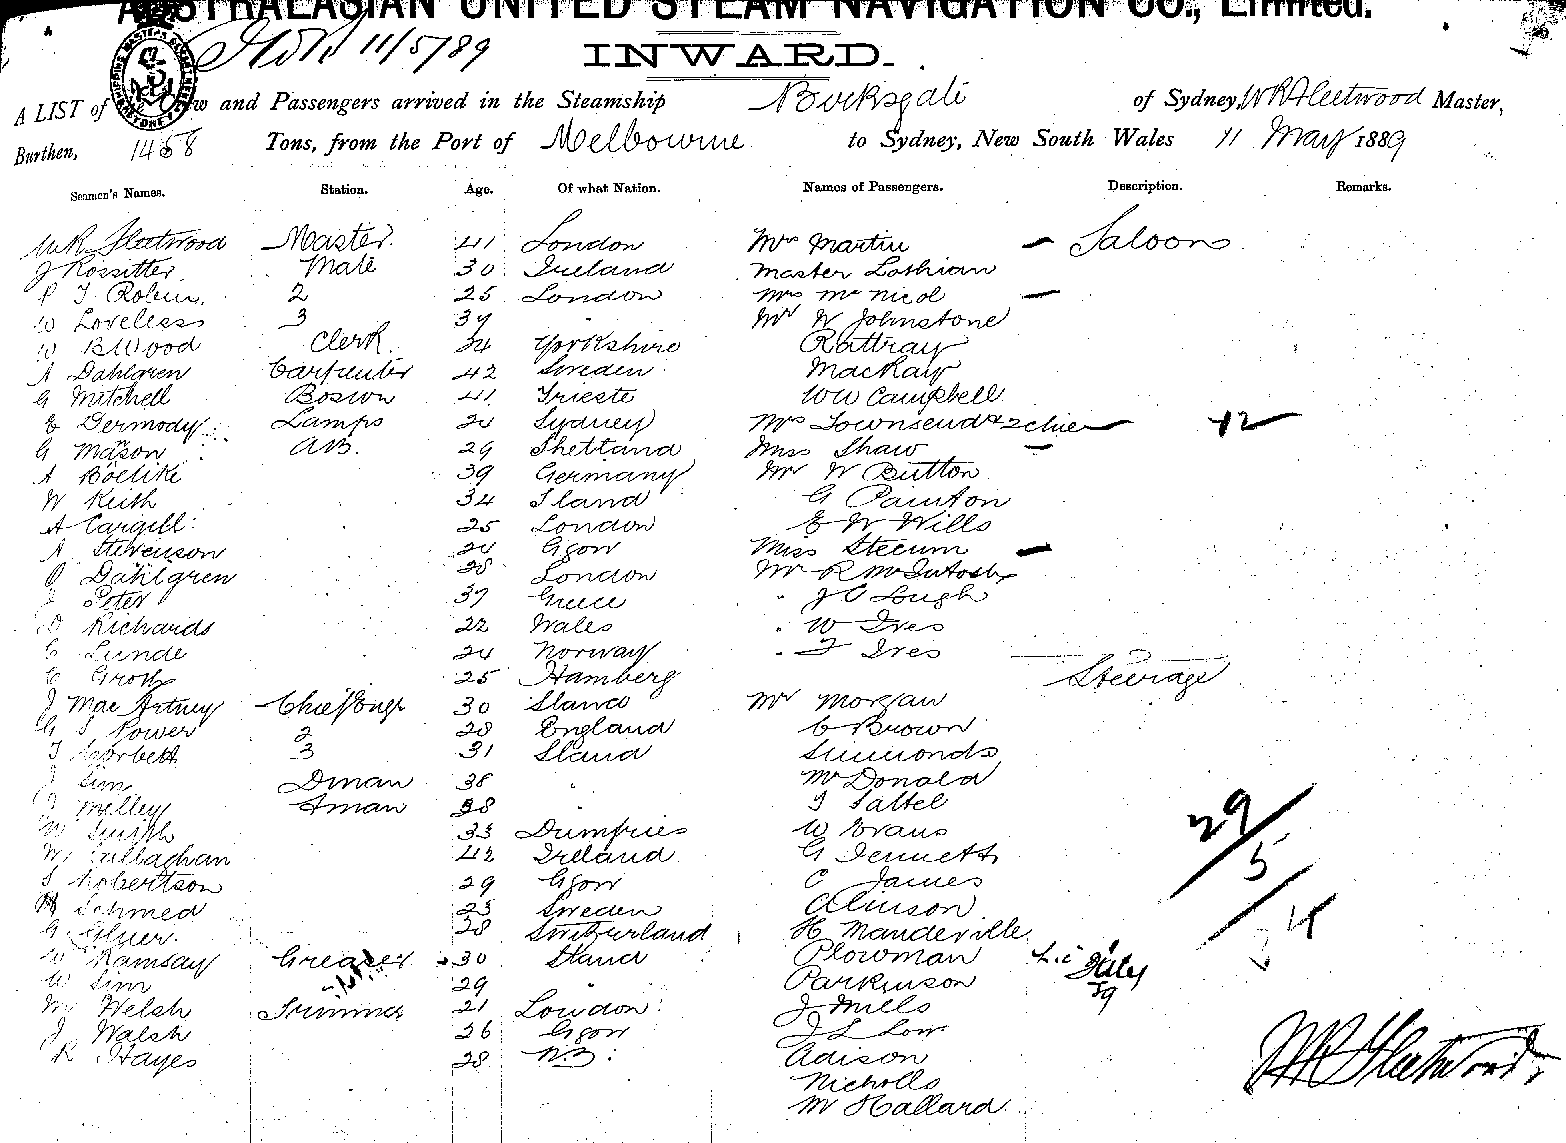 AUSTRALASIAN UNITED STEAM NAVIGATION CO., Limited.
11/5/89
INWARD.
A LIST of Crew and Passengers arrived in the Steamship Bucksgate of Sydney, W R Fleetwood Master,
Burthen, 1458 Tons, from the Port of Melbourne to Sydney, New South Wales 11 May 1889
Seamen's Names. Station. Age. Of what Nation. Names of Passengers. Description. Remarks.
W R Fleetwood Master 41 London Mrs Martin — Saloon
J Rossitter Mate 30 Ireland Master Lothian
P J Robins 2 25 London Mrs McNicol —
W Loveless 3 39 " Mr W Johnstone
W B Wood Clerk 24 Yorkshire Rattray
A Dahlgren Carpenter 42 Sweden Mackay
G Mitchell Boswn 41 Trieste WW Campbell
E Dermody Lamps 24 Sydney Mrs Townsend & 2 chier — 12
G Mason AB. 29 Shetland Miss Shaw —
A Boelike 39 Germany Mr W Button
W Keith 34 Sland G Painton
A Cargill 25 London E W Wills
A Stevenson 24 Ggow Miss Steeum —
Dahlgren 28 London Mr R McIntosh
Peter 37 Greece " J C Lough
D Richards 22 Wales " W Ives
C Lunde 24 Norway " F Ives
C Groth 25 Hamberg Steerage
J MacArtney Chief Engr 30 Sland Mr Morgan
G J Power 2 28 England C Brown
T Corbett 3 31 Sland Simmonds
J Sim Dman 38 " McDonald
J Melley Fman 38 J Saltel
W 33 Dumfries W Evans
W Callaghan 42 Ireland G Jennett
S Robertson 29 Ggow C James
Schmed 23 Sweden Alinson
G 28 Switzerland H Mandeville
W Ramsay Greaser 30 Sland Plowman
W Sim 29 " Parkinson
M Welsh Trimmer 21 London J Mills
J Walsh 26 Ggow J L Low
R Hayes 28 N.B. Adison
Nicholls
M Hallard
29/5/
W R Fleetwood